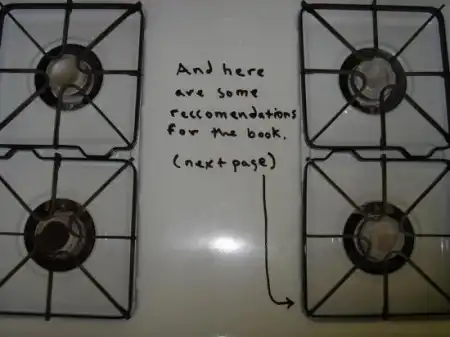 And here
are some
reccomendations
for the book.
(next page)